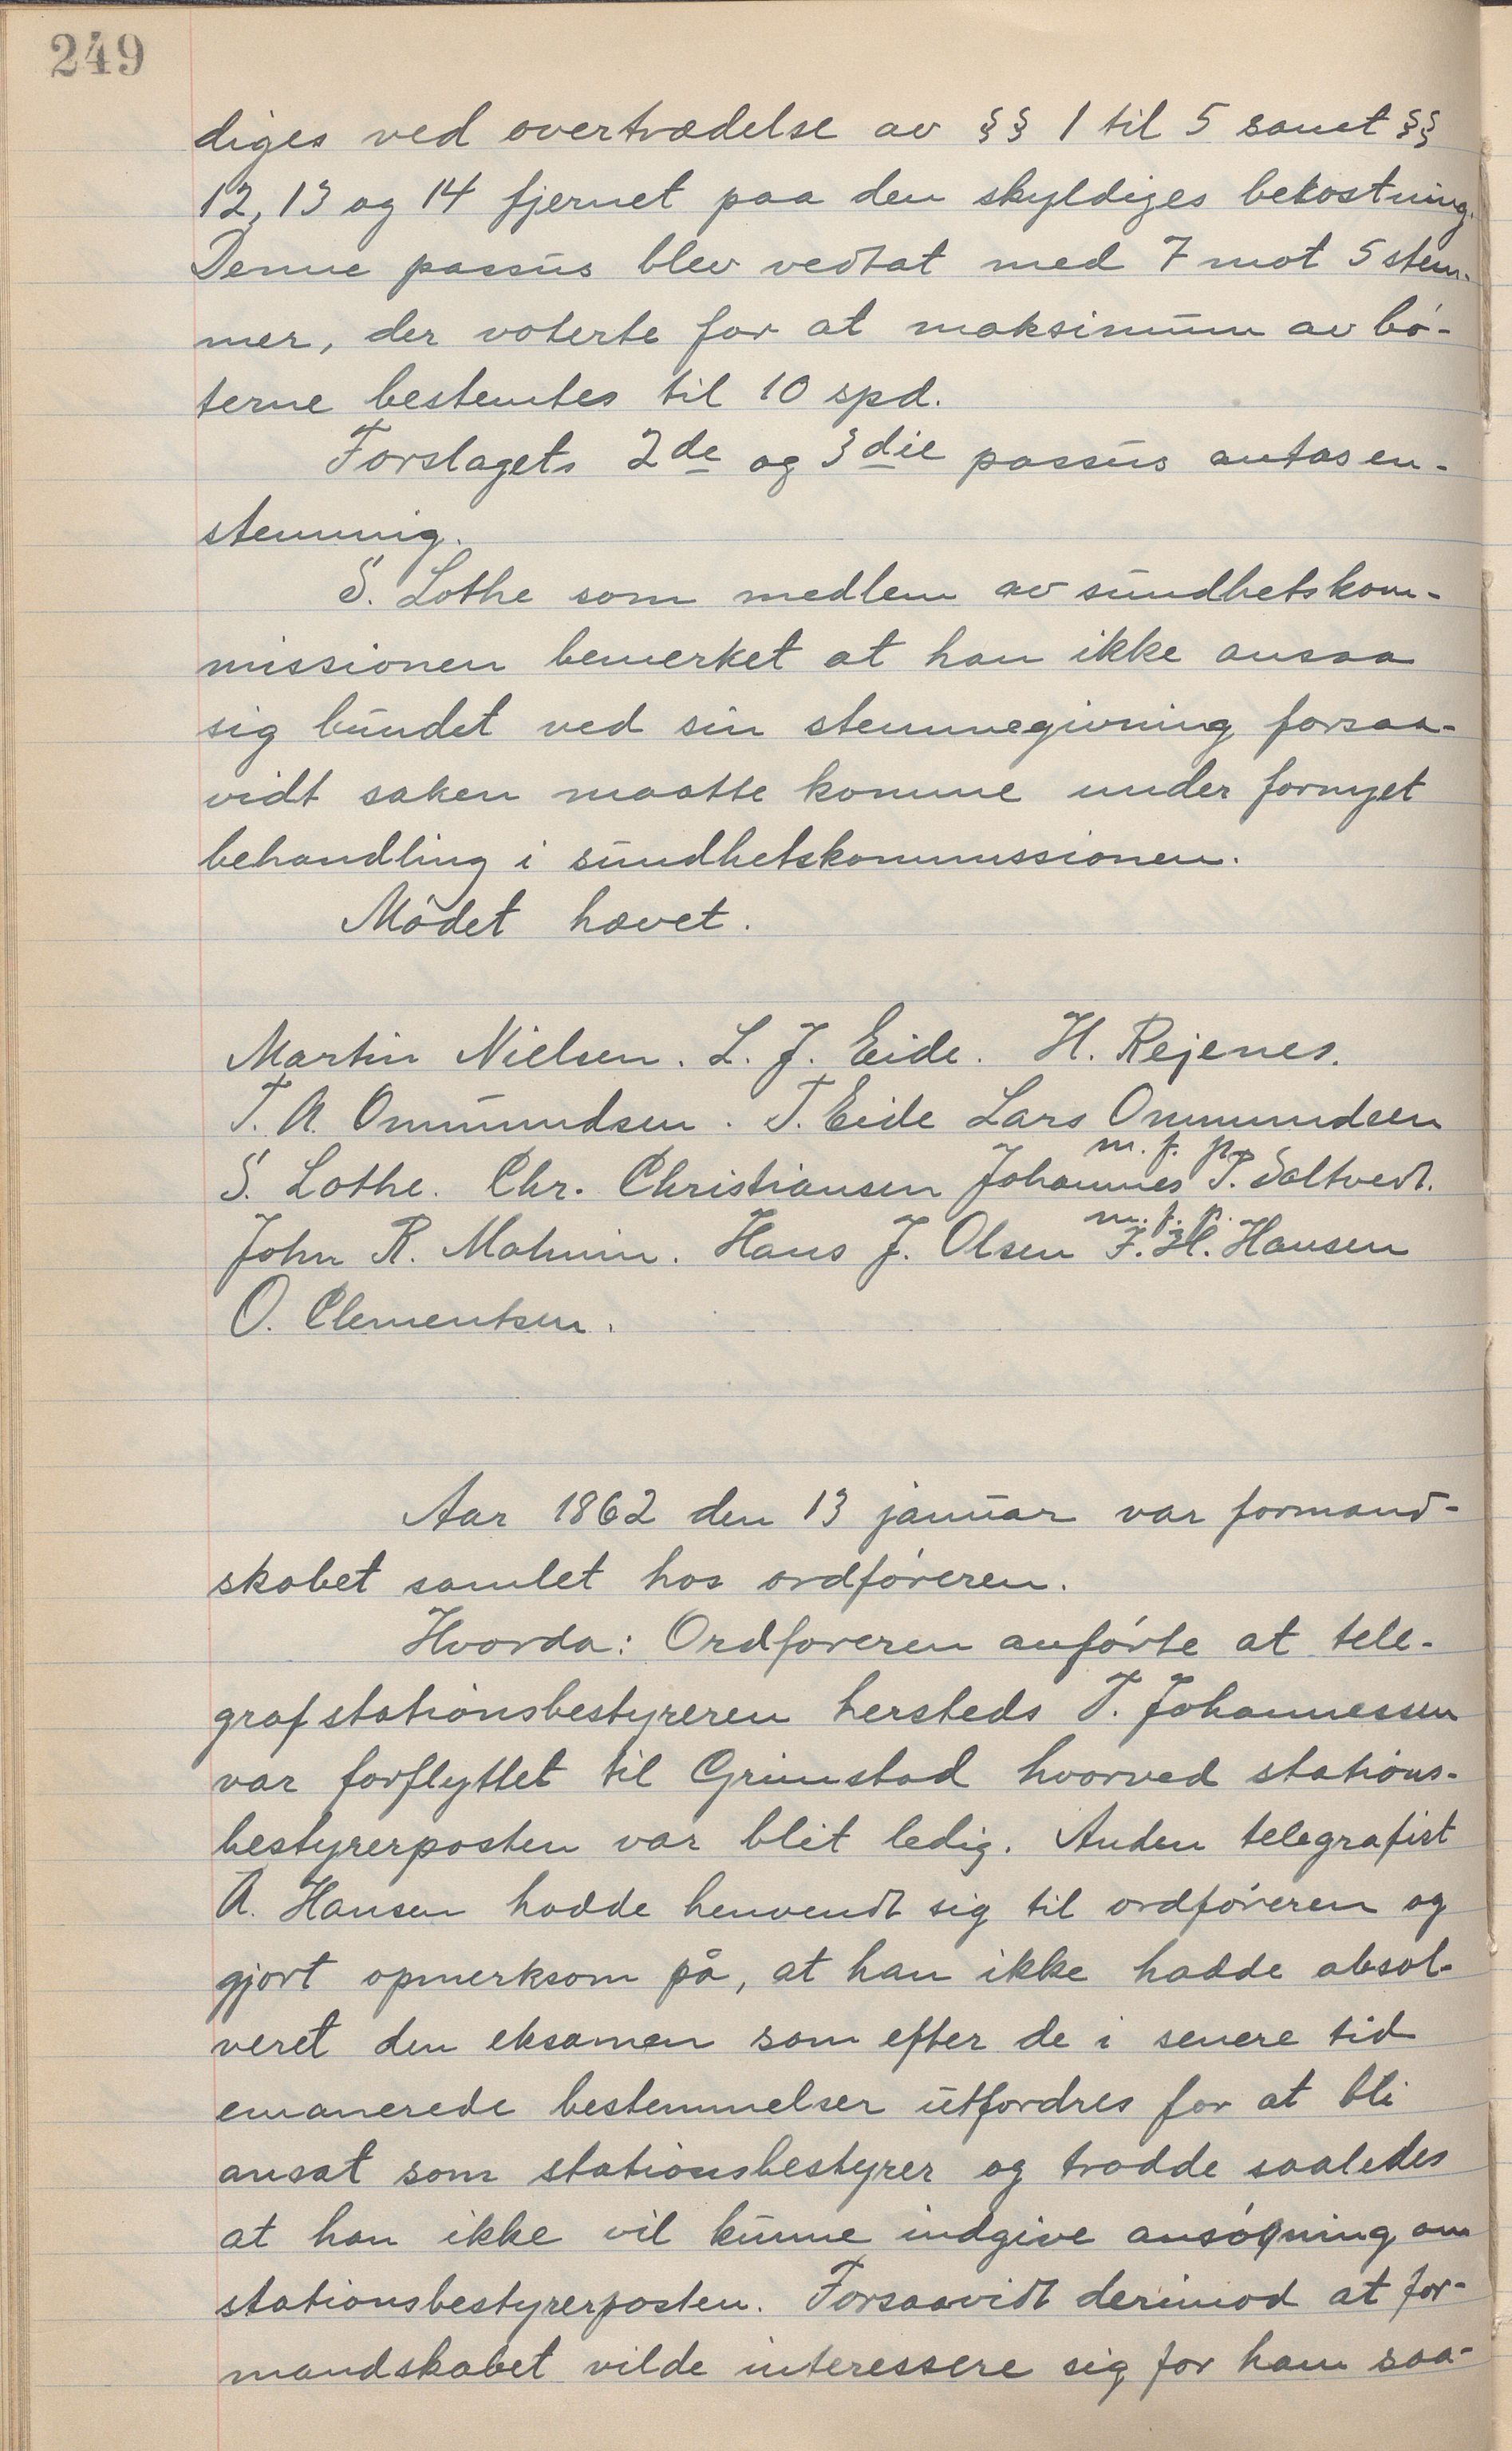 249
diges ved overtrædelse av §§ 1 til 5 samt §§
12, 13 og 14 fjernet paa den skyldiges bekostning.
Denne passus blev vedtat med 7 mot 5 stem-
mer, der voterte for at maksimum av bö-
terne bestemtes til 10 spd.
Forslagets 2de og 3die passus antas en-
stemmig.
S. Lothe som medlem av sundhetskom-
missionen bemerket at han ikke ansaa
sig bundet ved sin stemmegivning forsaa-
vidt saken maatte komme under fornyet
behandling i sundhetskommissionen.
Mödet hævet.
Martin Nielsen. L. J. Eide. H. Rejenes.
T. A. Ommundsen. T. Eide Lars Ommundsen
m. f. p.
S. Lothe. Chr. Christiansen Johannes T. Saltvedt.
m. f. p.
John R. Malmin. Hans J. Olsen F. H. Hansen
O. Clementsen.
Aar 1862 den 13 januar var formand-
skabet samlet hos ordföreren.
Hvorda: Ordföreren anförte at tele-
grafstationsbestyreren hersteds T. Johannessen
var forflyttet til Grimstad hvorved stations-
bestyrerposten var blit ledig. Anden telegrafist
A. Hansen hadde henvendt sig til ordföreren og
gjort opmerksom på, at han ikke hadde absol-
veret den eksamen som efter de i senere tid
emanerede bestemmelser utfordres for at bli
ansat som stationsbestyrer og trodde saaledes
at han ikke vil kunne indgive ansökning om
stationsbestyrerposten. Forsaavidt derimod at for-
mandskabet vilde interessere sig for ham saa-